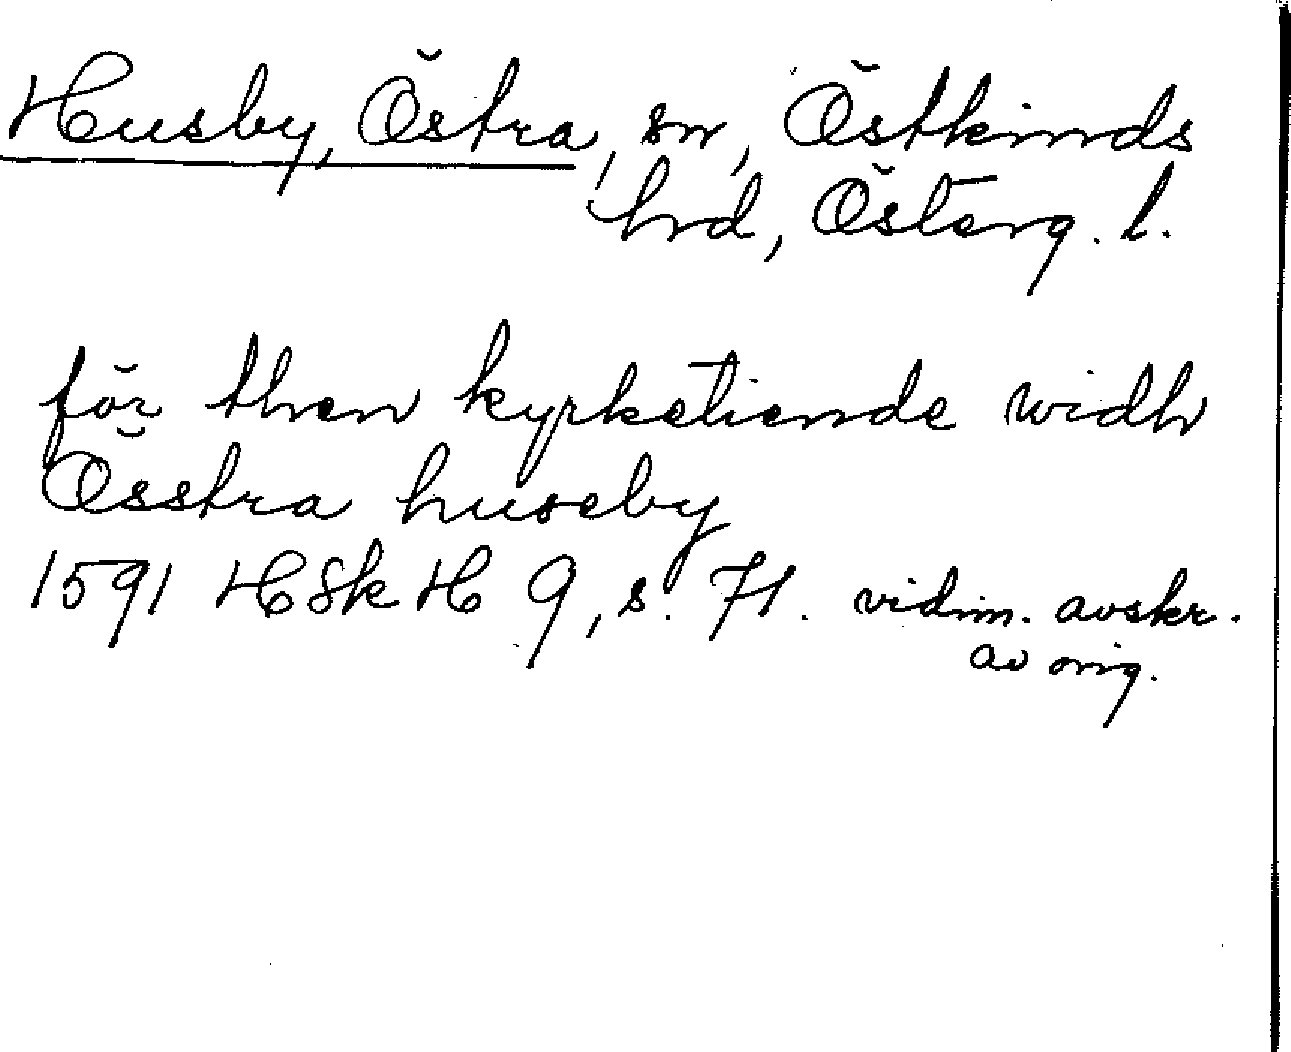 Husby, Östra, sn, Östkinds
hrd, Österg. l.
för then kyrketiende widh
Össtra huseby
1591 HSkH 9, s. 71. vidim. avskr.
av orig.